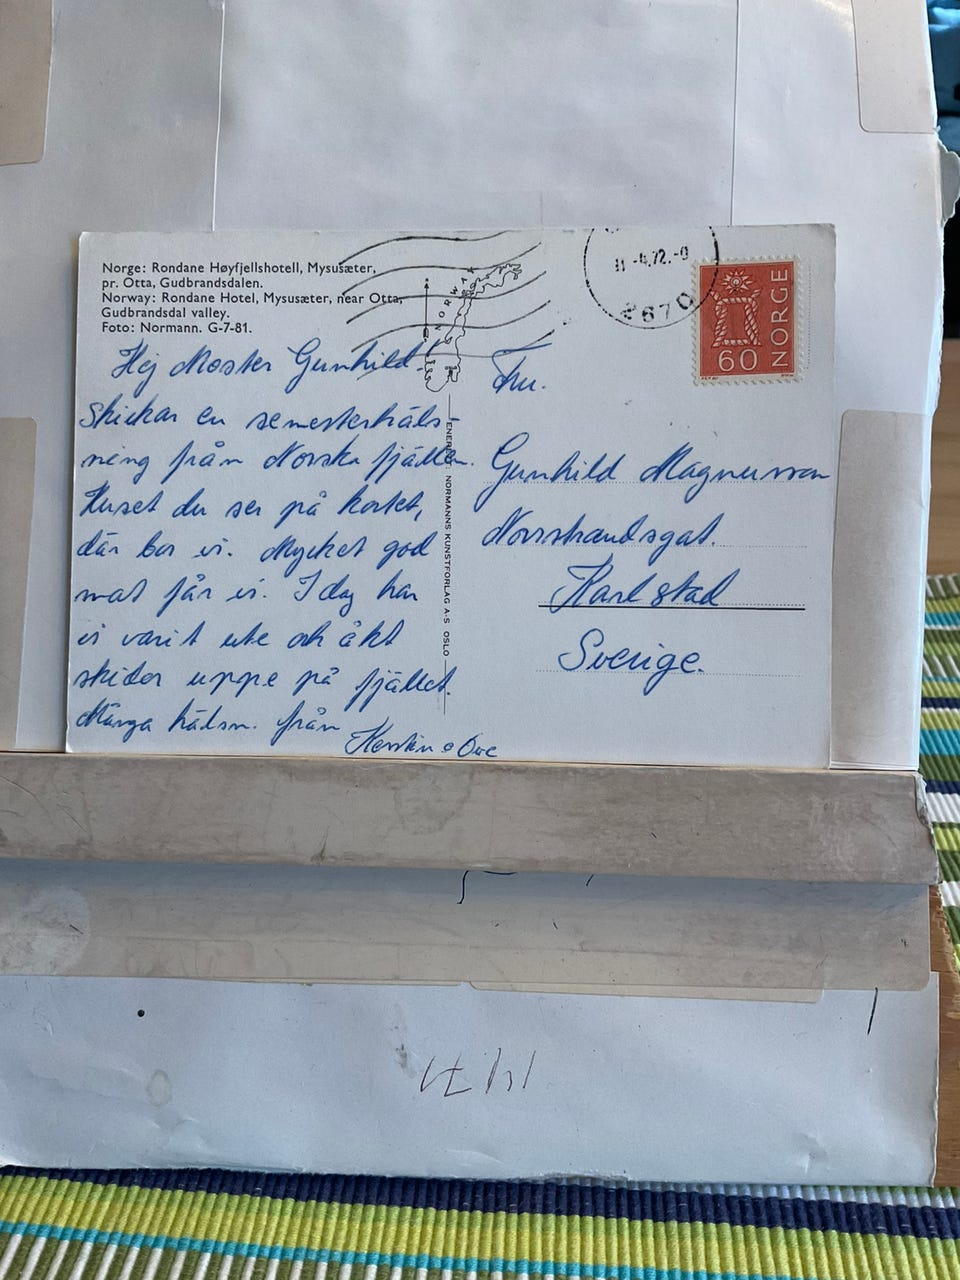 Norge: Rondane Høyfjellshotell, Mysusæter,
pr. Otta, Gudbrandsdalen.
Norway: Rondane Hotel, Mysusæter, near Otta,
Gudbrandsdal valley.
Foto: Normann. G-7-81.
Hej Moster Gunhild!
Skickar en semesterhäls-
ning från Norska fjällen.
Huset du ser på kortet,
där bor vi. Mycket god
mat får vi. I dag har
vi varit ute och åkt
skidor uppe på fjället.
Många hälsn. från
Kerstin o Ove
ENERETT NORMANNS KUNSTFORLAG A-S OSLO
NORWAY
11-4.72.-0
2670
60 NORGE
Fru.
Gunhild Magnusson
Norrstrandsgat.
Karlstad
Sverige.